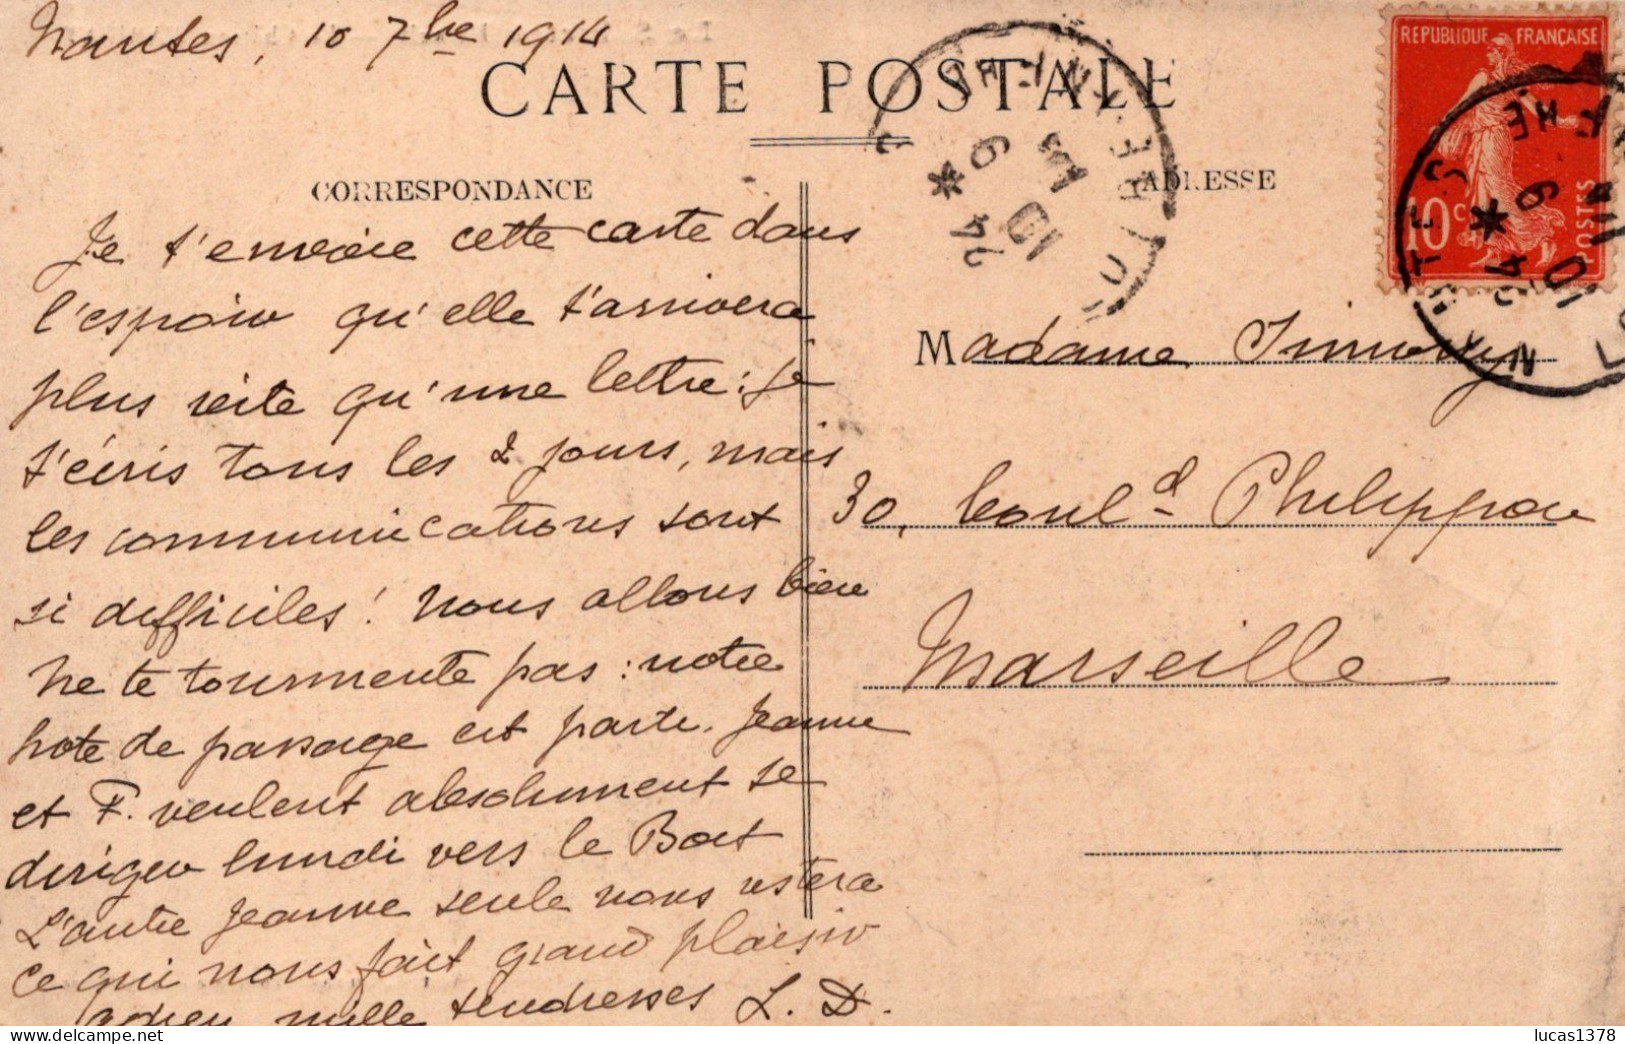 Nantes, 10 7bre 1914
CARTE POSTALE
CORRESPONDANCE
ADRESSE
REPUBLIQUE FRANÇAISE
10 c
POSTES
Je t'envoie cette carte dans
l'espoir qu'elle t'arrivera
plus vite qu'une lettre : je
t'écris tous les 2 jours, mais
les communications sont
si difficiles ! Nous allons bien
ne te tourmente pas : notre
hote de passage est parti. Jeanne
et F. veulent absolument se
diriger lundi vers le Bost
L'autre Jeanne seule nous restera
ce qui nous fait grand plaisir
adieu mille tendresses L. D.
Madame
30, boul.d Philippon
Marseille
lucas1378